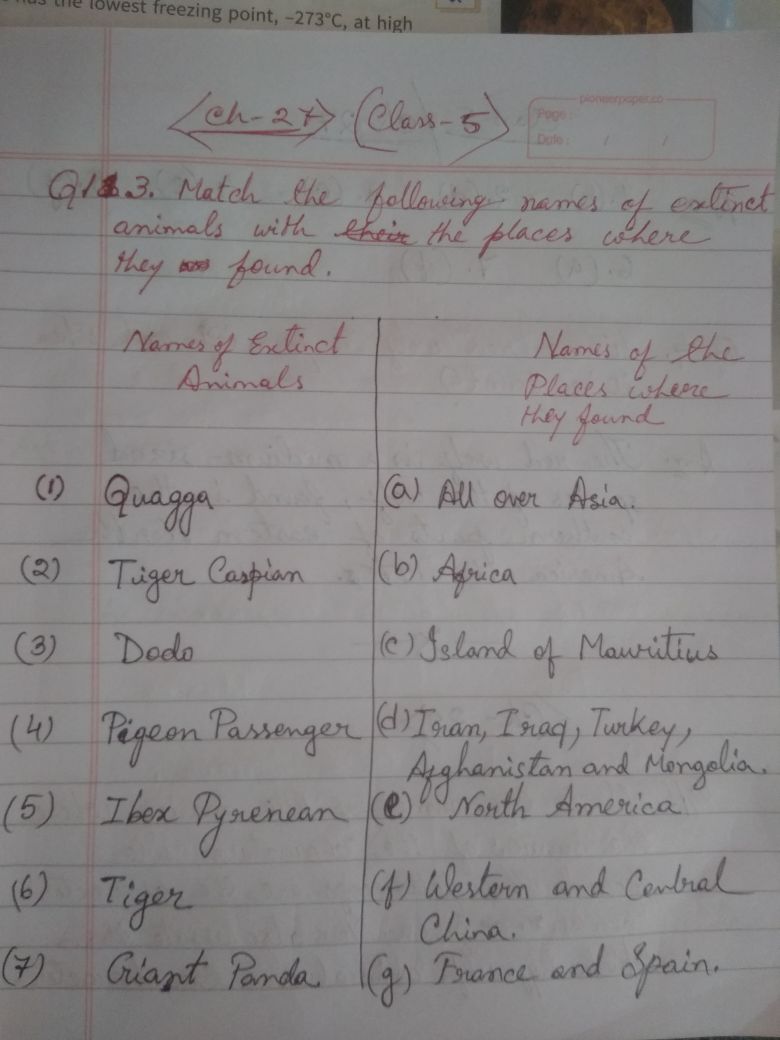 has the lowest freezing point, –273°C, at high
<Ch-27> (Class-5)
pioneerpaper.co
Page:
Date: / /
Q 3. Match the following names of extinct
animals with their the places where
they found.
Names of Extinct
Animals
Names of the
Places where
they found
(1) Quagga (a) All over Asia.
(2) Tiger Caspian (b) Africa
(3) Dodo (c) Island of Mauritius
(4) Pigeon Passenger (d) Iran, Iraq, Turkey,
Afghanistan and Mongolia.
(5) Ibex Pyrenean (e) North America
(6) Tiger (f) Western and Central
China.
(7) Giant Panda. (g) France and Spain.